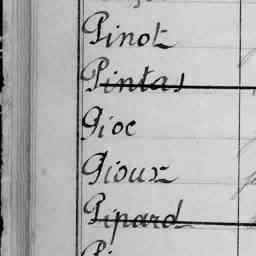 Pinot
Pintas
Pioc
Pioux
Pipard